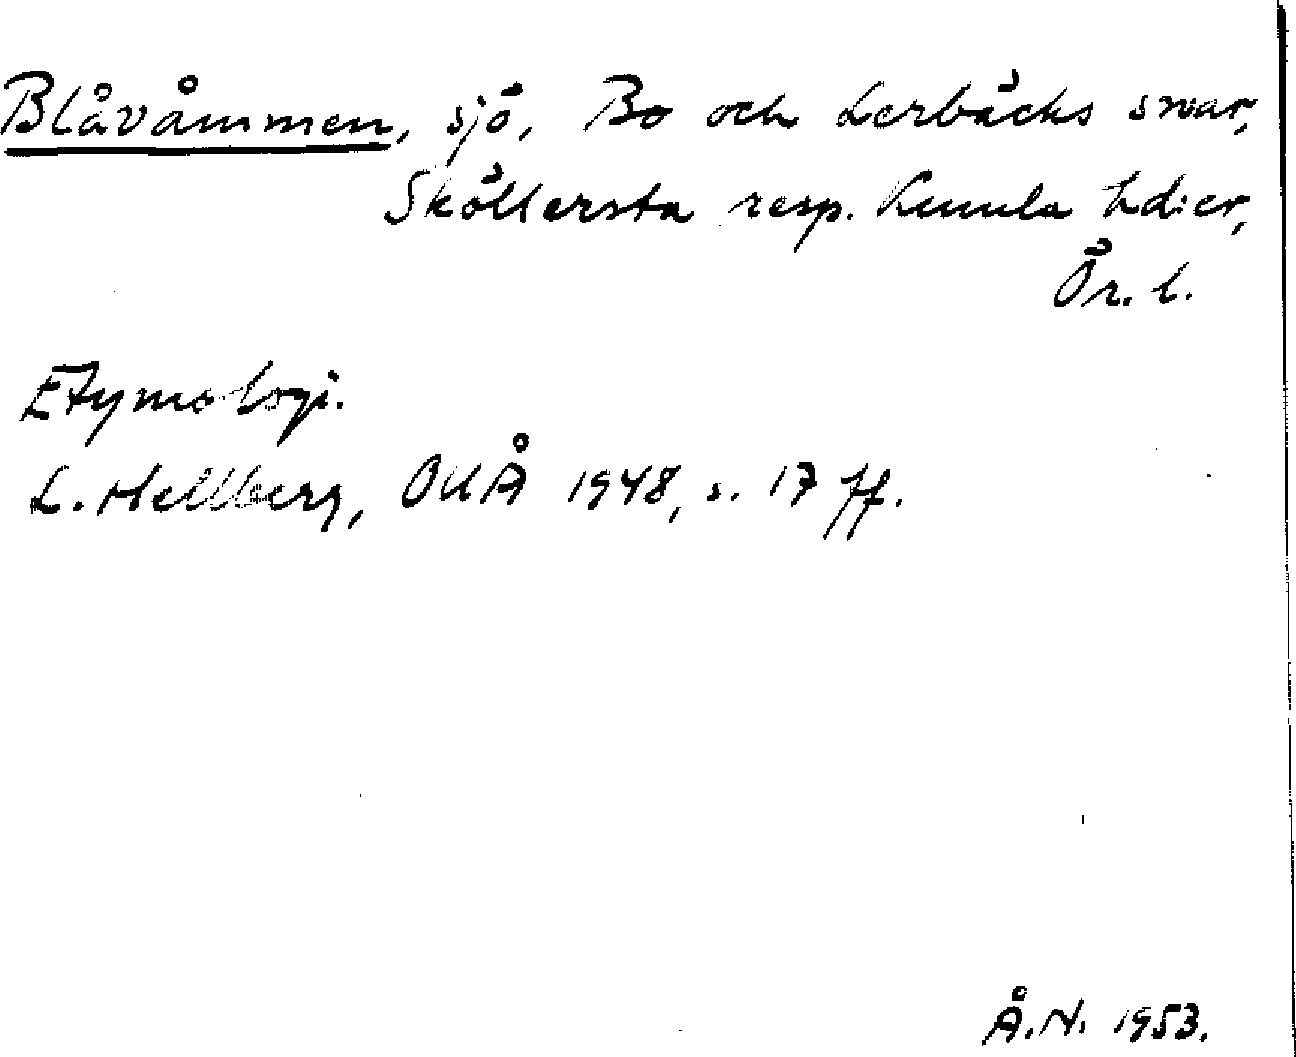 Blåvåmmen, sjö, Bo och Lerbäcks snar,
Sköllersta resp. Kumla hd:er,
Ör. l.
Etymologi.
L. Hellberg, OUÅ 1948, s. 17 ff.
Å.N. 1953.